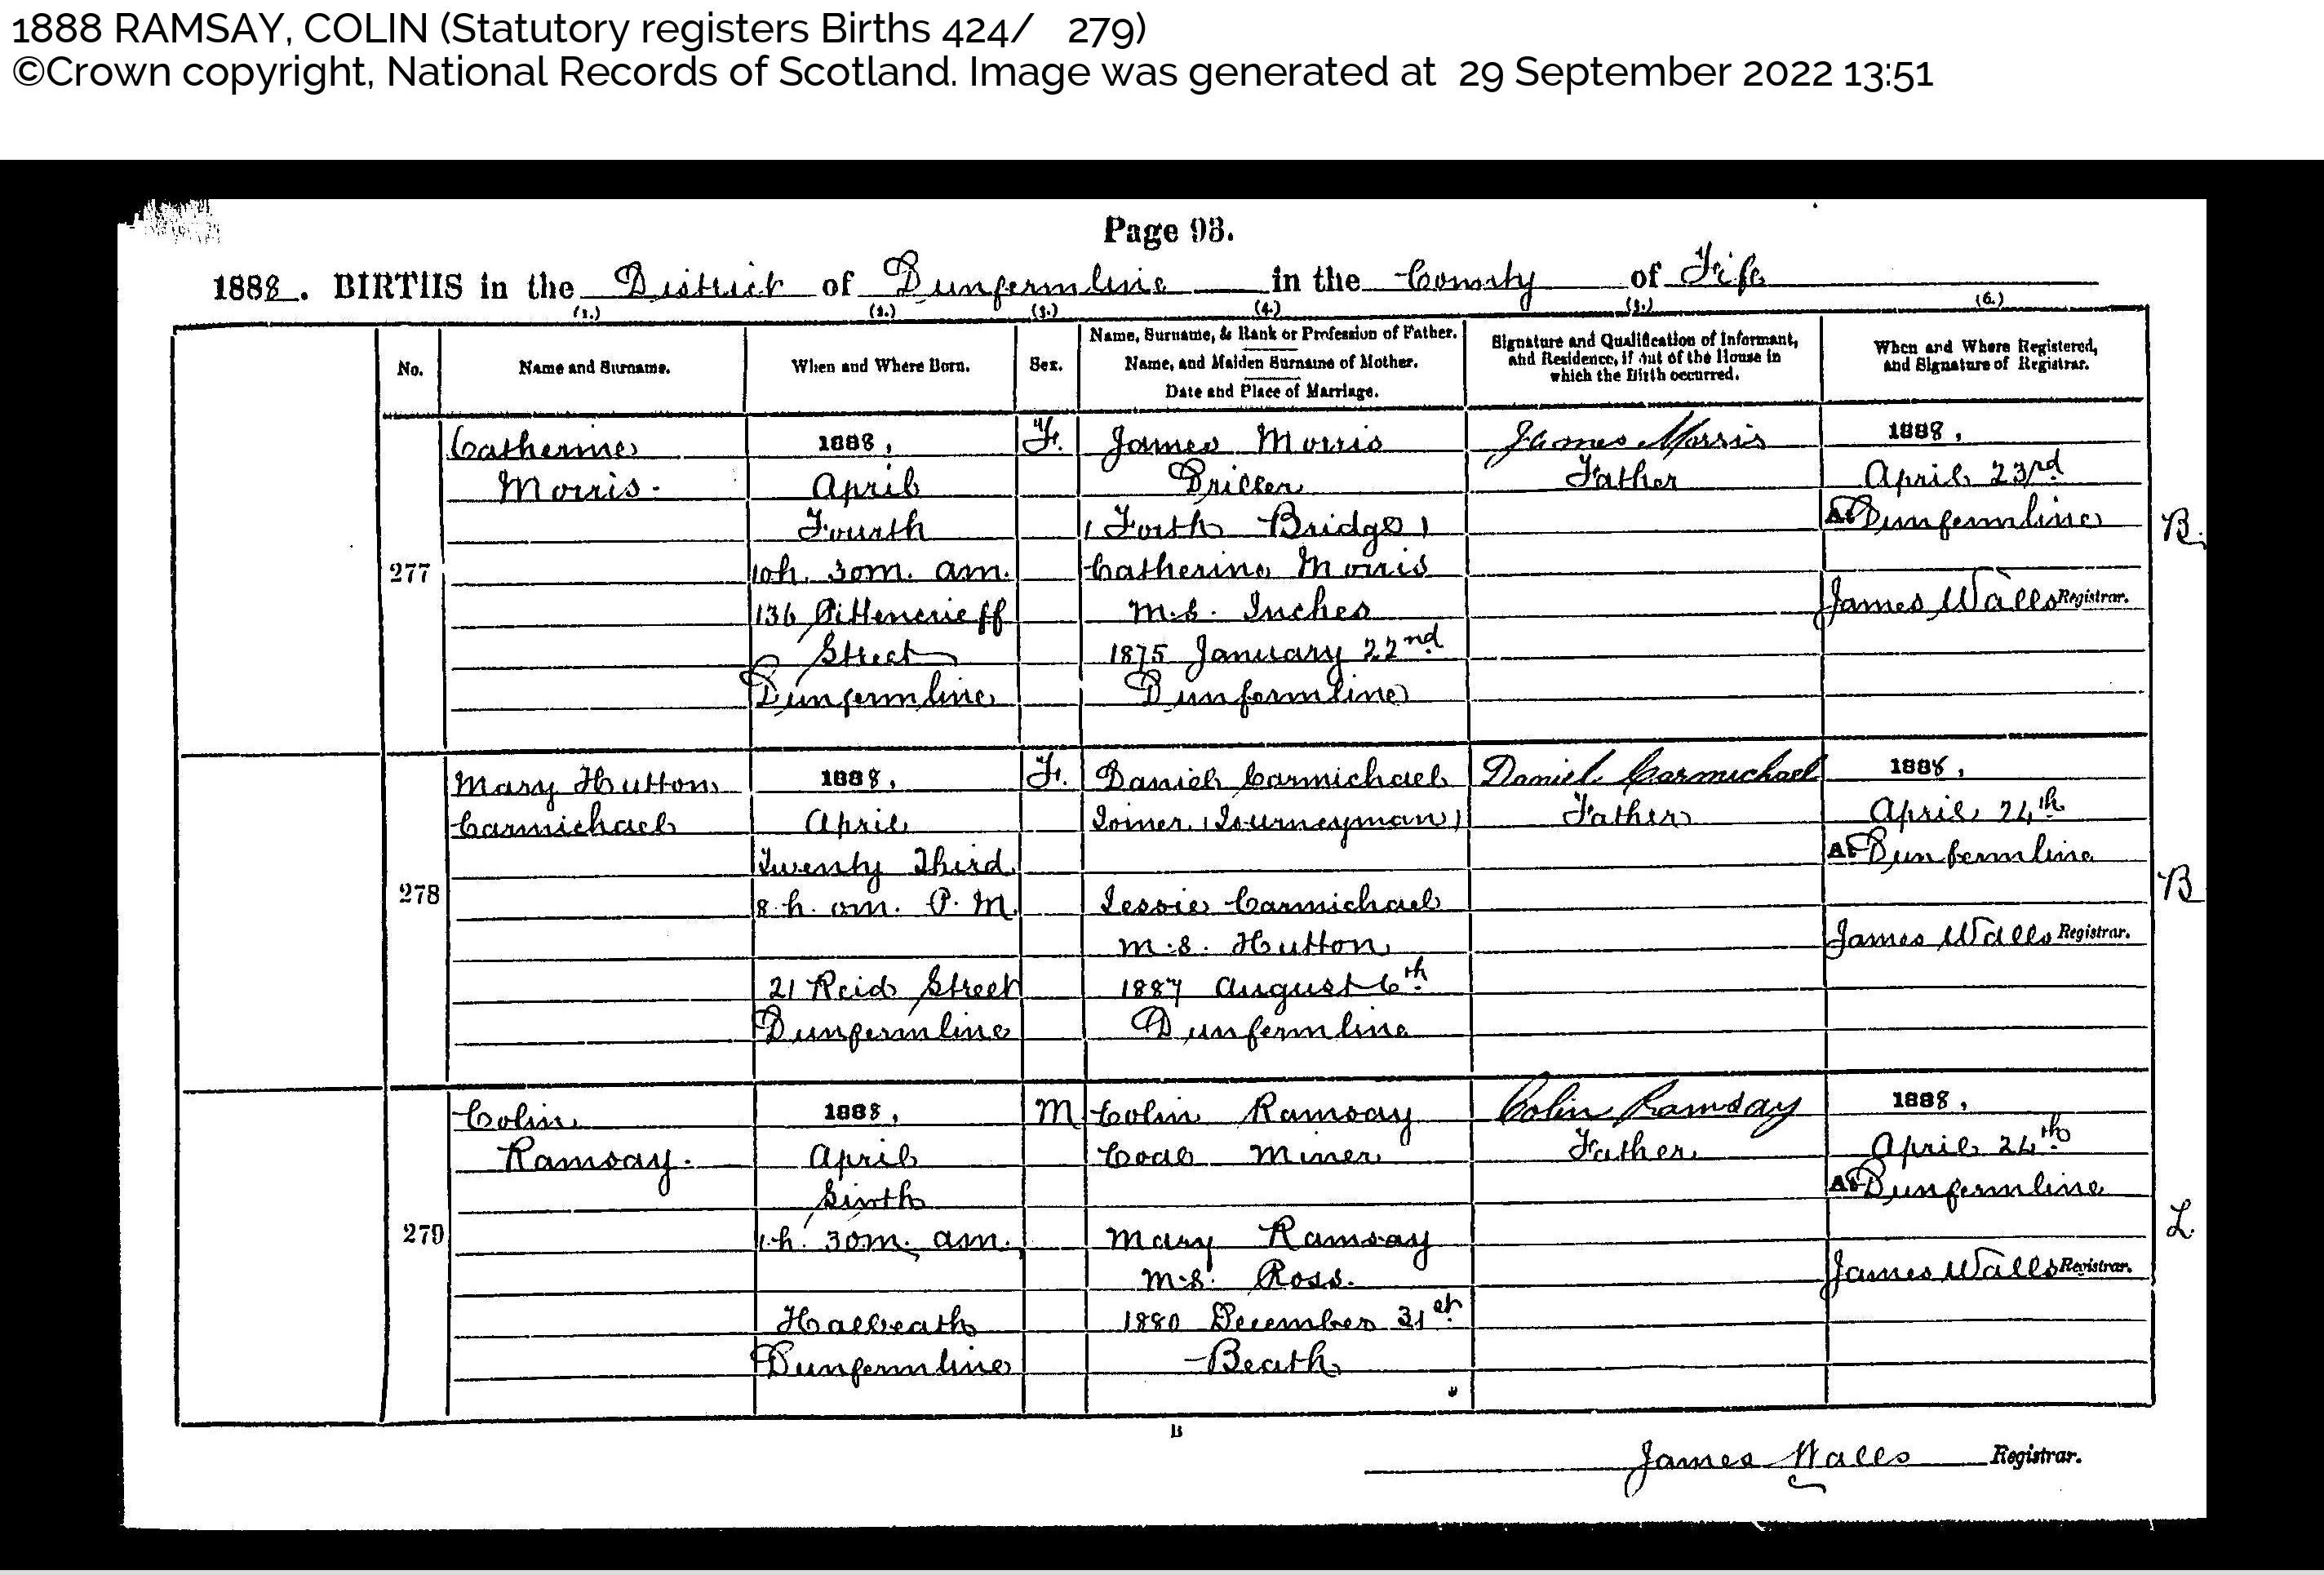 1888 RAMSAY, COLIN (Statutory registers Births 424/ 279)
©Crown copyright, National Records of Scotland. Image was generated at 29 September 2022 13:51
Page 93.
1888. BIRTHS in the District of Dunfermline in the County of Fife
(1.) (2.) (3.) (4.) (5.) (6.)
No.
Name and Surname.
When and Where Born.
Sex.
Name, Surname, & Rank or Profession of Father.
Name, and Maiden Surname of Mother.
Date and Place of Marriage.
Signature and Qualification of Informant,
and Residence, if out of the House in
which the Birth occurred.
When and Where Registered,
and Signature of Registrar.
277
Catherine
Morris.
1888,
April
Fourth
10h. 30m. am.
136 Pittencrieff
Street
Dunfermline
F.
James Morris
Driller
(Forth Bridge)
Catherine Morris
m.s. Inches
1875 January 22nd
Dunfermline
James Morris
Father
1888,
April 23rd
At Dunfermline
James Walls Registrar.
B.
278
Mary Hutton
Carmichael
1888,
April
Twenty Third
8.h. om. P.M.
21 Reid Street
Dunfermline
F.
Daniel Carmichael
Joiner (Journeyman)
Jessie Carmichael
m.s. Hutton
1887 August 6th
Dunfermline
Daniel Carmichael
Father
1888,
April 24th
At Dunfermline
James Walls Registrar.
B
279
Colin
Ramsay.
1888,
April
Sixth
1.h. 30m. am.
Halbeath
Dunfermline
M
Colin Ramsay
Coal Miner
Mary Ramsay
m.s. Ross.
1880 December 31st
Beath
Colin Ramsay
Father
1888,
April 24th
At Dunfermline
James Walls Registrar.
L.
B
James Walls Registrar.